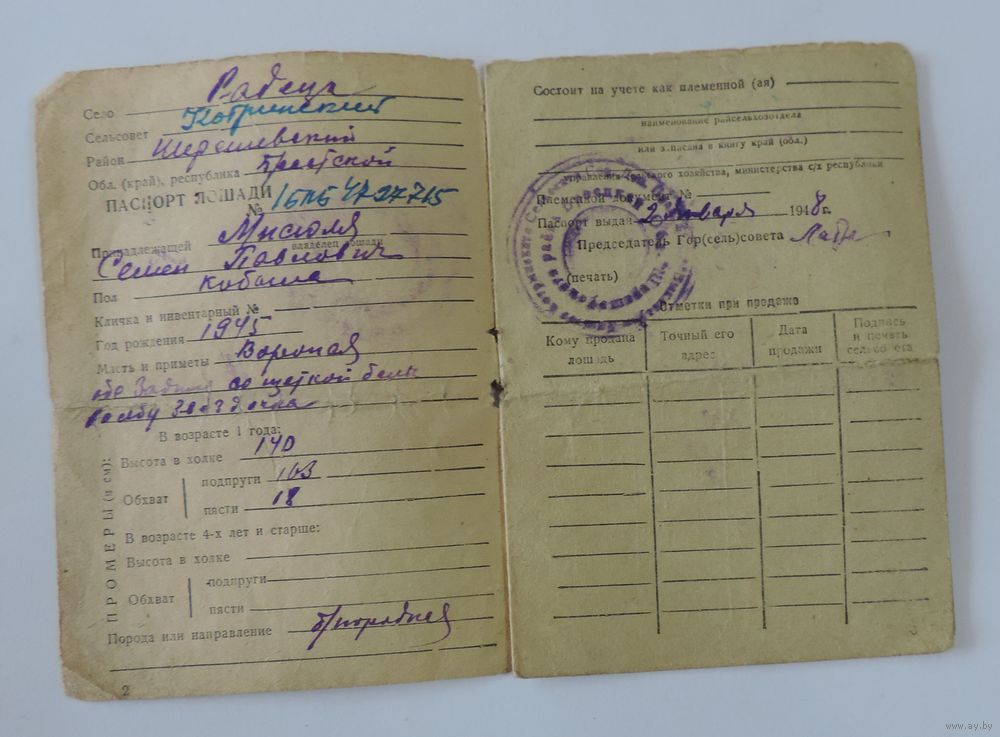 Село Радецк
Сельсовет Кобринский
Район Шерешевский
Обл. (край), республика Брестской
ПАСПОРТ ЛОШАДИ
№
Принадлежащей Мисюля
владелец лошади
Семен Павлович
Пол кобыла
Кличка и инвентарный №
Год рождения 1945
Масть и приметы Вороная
обе Задние со щеткой белы
звездочка
В возрасте 1 года:
ПРОМЕРЫ (в см):
Высота в холке 140
Обхват
подпруги 163
пясти 18
В возрасте 4-х лет и старше:
Высота в холке
Обхват
подпруги
пясти
Порода или направление б/породная
2
Состоит на учете как племенной (ая)
наименование райсельхозотдела
или записана в книгу край (обл.)
управления сельского хозяйства, министерства с/х республики
Племенной документ №
Паспорт выдан 2 января 1948 г.
Председатель Гор(сель)совета
(печать)
Отметки при продаже
Кому продана лошадь
Точный его адрес
Дата продажи
Подпись и печать сельсовета
3
www.ay.by